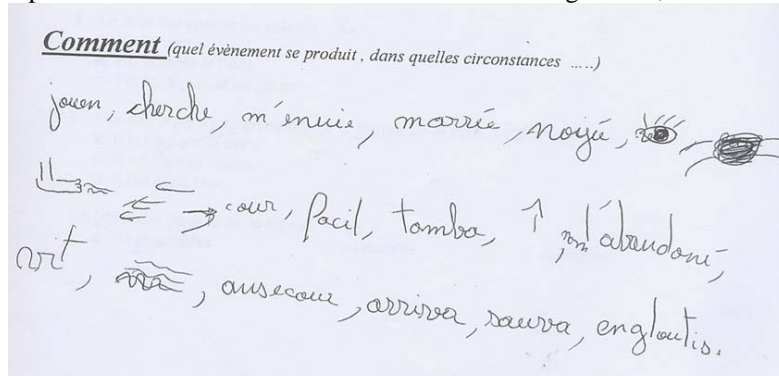 Comment (quel évènement se produit , dans quelles circonstances .....)
jouer, cherche, m'enuie, marrée, noyé,
cour, facil, tomba, ↑, l'abandoné,
vit, ausecour, arriva, sauva, engloutis.